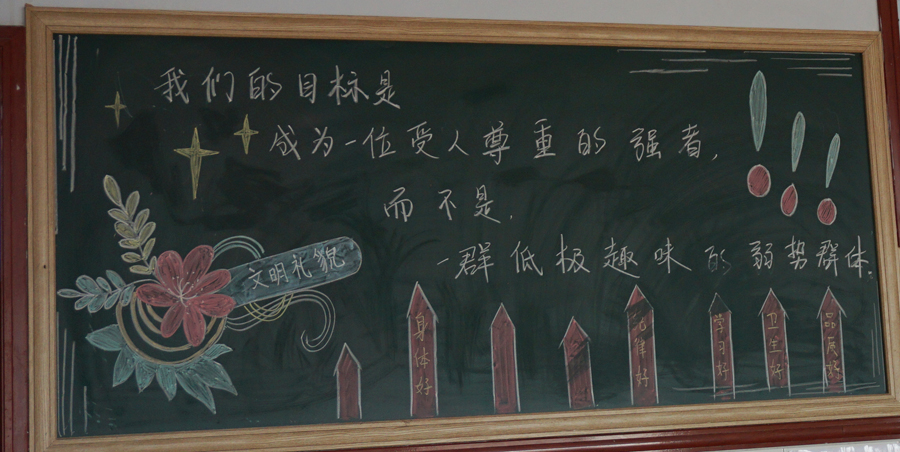 我们的目标是
成为一位受人尊重的强者,
而不是,
一群低极趣味的弱势群体.
文明礼貌
身体好
纪律好
学习好
卫生好
品质好